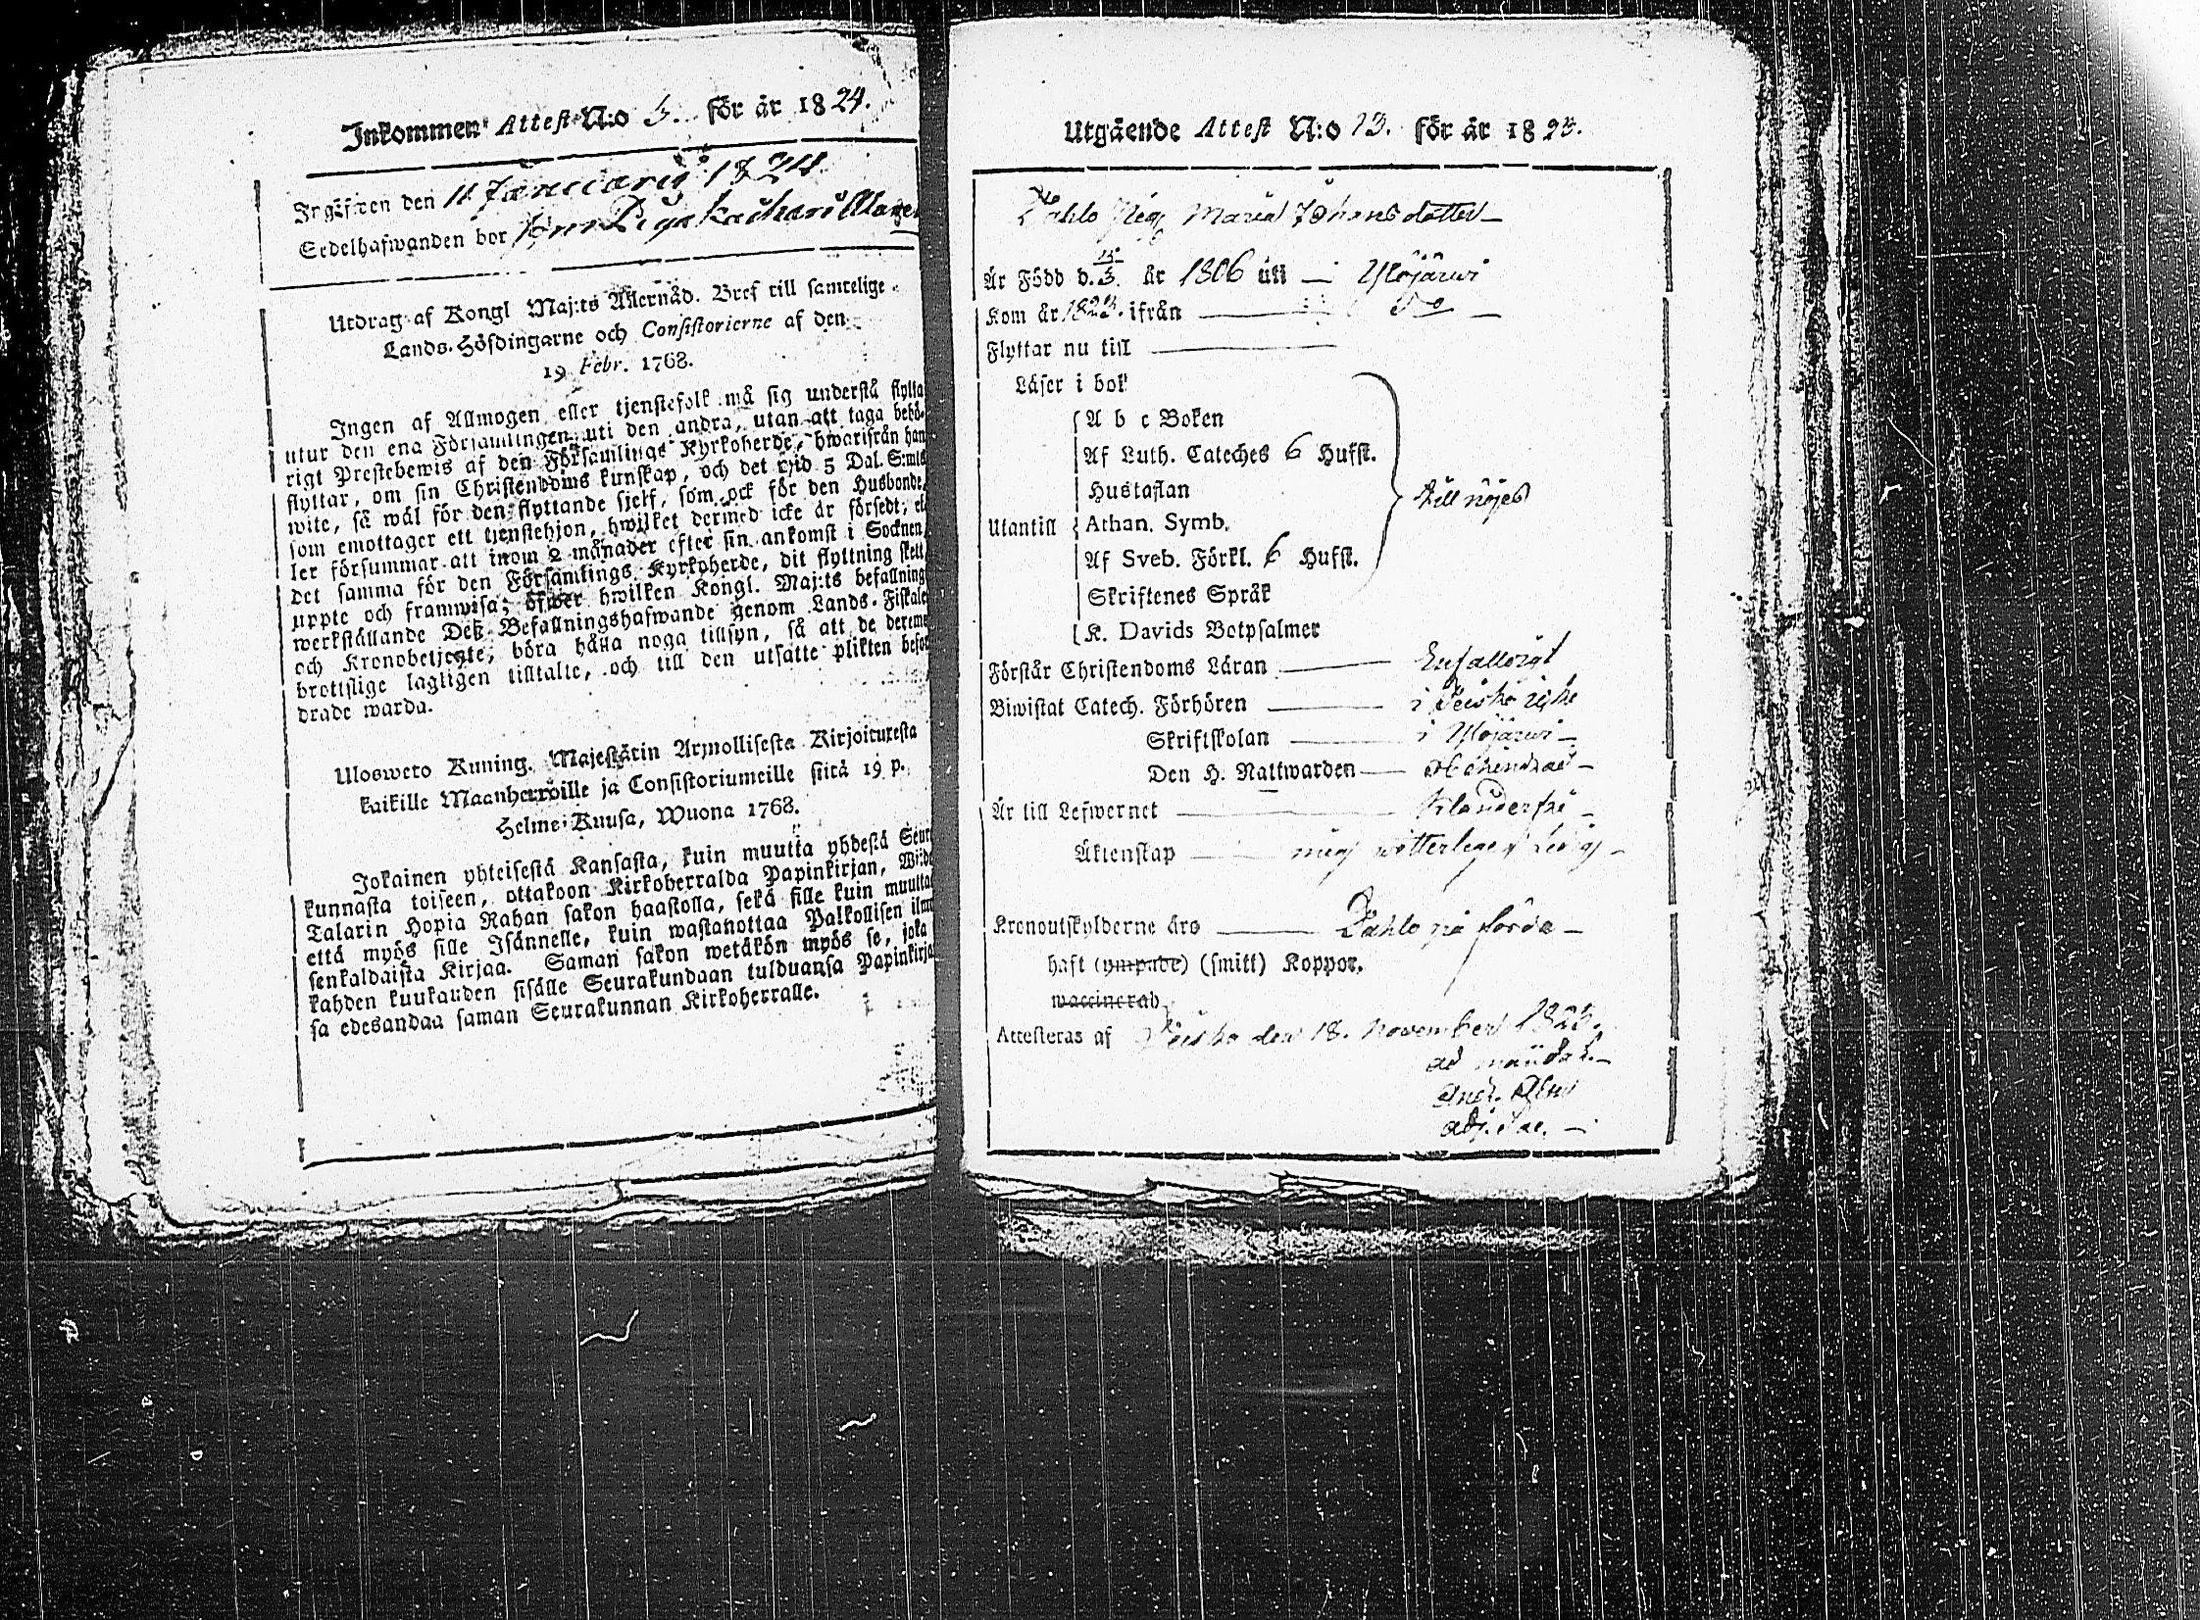 Inkommen Attest N:o 5. för år 1824.
Ingifwen den 11 Januarii 1824.
Sedelhafwanden bor
Utdrag af Kongl Maj:ts Allernåd. Bref till samtelige
Lands-Höfdingarne och Consistorierne af den
19 Febr. 1768.
Ingen af Allmogen eller tjenstefolk må sig understå flytta
utur den ena Församlingen uti den andra, utan att taga behö-
rigt Prestebewis af den Församlings Kyrkoherde, hwarifrån han
flyttar, om sin Christendoms kunskap, och det wid 5 Dal. S:mts
wite, så wäl för den flyttande sjelf, som ock för den Husbonde,
som emottager ett tjenstehjon, hwilket dermed icke är försedt; el
ler försummar att inom 2 månader efter sin ankomst i Socknen
det samma för den Församlings Kyrkoherde, dit flyttning skett
uppte och framwisa; öfwer hwilken Kongl. Maj:ts befallning
werkställande Deß Befallningshafwande genom Lands-Fiskale
och Kronobetjente, böra hålla noga tillsyn, så att de dereme
brottslige lagligen tilltalte, och till den utsatte plikten befor
drade warda.
Ulosweto Kuning. Majestätin Armollisesta Kirjoituxesta
kaikille Maanherroille ja Consistoriumeille siitä 19 p.
Helme-Kuusa, Wuona 1768.
Jokainen yhteisestä Kansasta, kuin muutta yhdestä Seur
kunnasta toiseen, ottakoon Kirkoherralda Papinkirjan, Wiide
Talarin Hopia Rahan sakon haastolla, sekä sille kuin muutta
että myös sille Isännelle, kuin wastanottaa Palkollisen ilm
senkaldaista Kirjaa. Saman sakon wetäkön myös se, joka
kahden kuukauden sisälle Seurakundaan tulduansa Papinkirja
sa edesandaa saman Seurakunnan Kirkoherralle.
Utgående Attest N:o 13. för år 1823.
Pig. Maria Johansdotter
Är Född d. 15/3. År 1806 uti i Ylöjärwi
Kom år 1823. ifrån Do
Flyttar nu till
Läser i bok
A b c Boken
Af Luth. Cateches 6 Hufst.
Hustaflan
Utantill Athan. Symb. till nöjes
Af Sveb. Förkl. 6 Hufst.
Skriftenes Språk
K. Davids Botpsalmer
Förstår Christendoms Läran Enfalleigt
Biwistat Catech. Förhören i
Skriftskolan i Ylöjärwi
Den H. Nattwarden obehindrad
Är till Lefwernet klanderfri
Äktenskap ledig
Kronoutskylderne äro
haft (ympade) (smitt) Koppor.
waccinerad
Attesteras af den 18. November 1823.
ad mandat.
And.
adj. Sac.